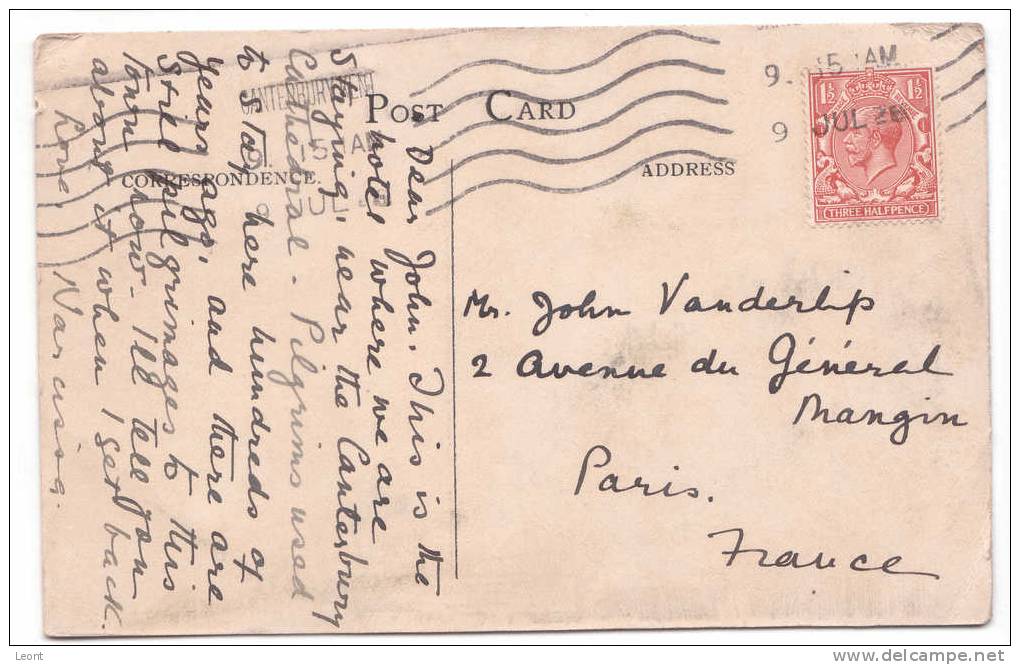 POST CARD
CORRESPONDENCE.
ADDRESS
CANTERBURY KENT
9. 15 AM
9 JUL 26
THREE HALFPENCE
Dear John. This is the
hotel where we are
staying, near the Canterbury
Cathedral. Pilgrims used
to stay here hundreds of
years ago, and there are
still pilgrimages to this
town now. I'll tell you
about it when I get back.
Love,
Mr. John Vanderlip
2 Avenue du Général
Mangin
Paris.
France
Leont
delcampe.net